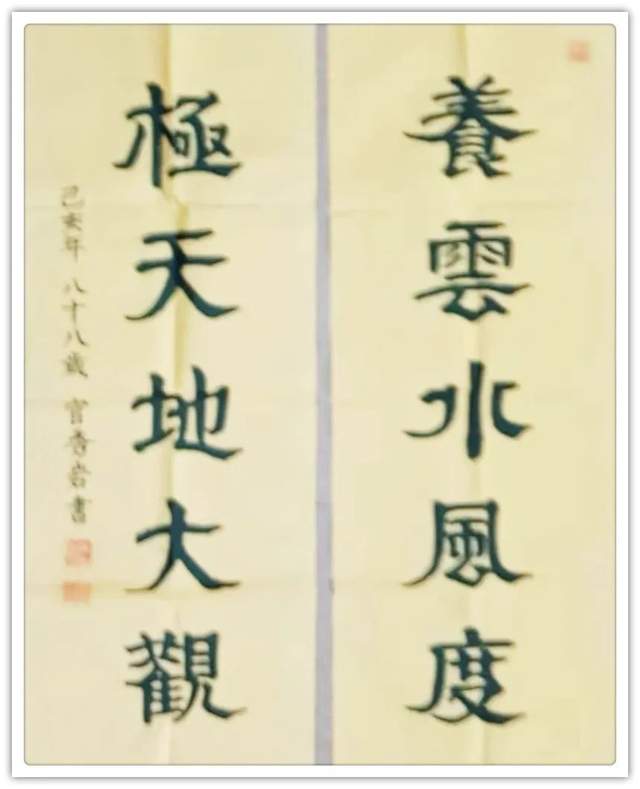 養雲水風度
極天地大觀
己亥年 八十八歲 官秀岩書